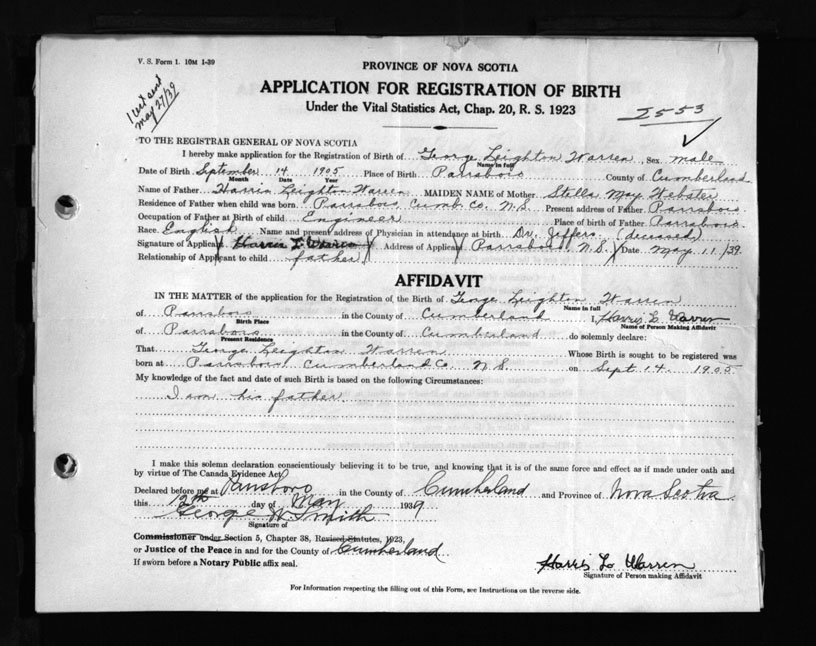 V. S. Form 1. 10M 1-39
1 cert sent
May 27/39
PROVINCE OF NOVA SCOTIA
APPLICATION FOR REGISTRATION OF BIRTH
Under the Vital Statistics Act, Chap. 20, R. S. 1923
2553
TO THE REGISTRAR GENERAL OF NOVA SCOTIA
I hereby make application for the Registration of Birth of George Leighton Warren, Sex male
Name in full
Date of Birth September 14 1905 Place of Birth Parrsboro County of Cumberland
Month Date Year
Name of Father Harris Leighton Warren MAIDEN NAME of Mother Stella May Webster
Residence of Father when child was born Parrsboro Cumb. Co. N.S. Present address of Father Parrsboro
Occupation of Father at Birth of child Engineer Place of birth of Father Parrsboro
Race English Name and present address of Physician in attendance at birth Dr. Jeffers (deceased)
Signature of Applicant Harris L Warren Address of Applicant Parrsboro, N.S. Date May 11/39
Relationship of Applicant to child father
AFFIDAVIT
IN THE MATTER of the application for the Registration of the Birth of George Leighton Warren
Name in full
of Parrsboro in the County of Cumberland I, Harris L. Warren
Birth Place Name of Person Making Affidavit
of Parrsboro in the County of Cumberland do solemnly declare:
Present Residence
That George Leighton Warren Whose Birth is sought to be registered was
born at Parrsboro Cumberland Co. N.S. on Sept. 14 1905
My knowledge of the fact and date of such Birth is based on the following Circumstances:
I am his father
I make this solemn declaration conscientiously believing it to be true, and knowing that it is of the same force and effect as if made under oath and
by virtue of The Canada Evidence Act.
Declared before me at Parrsboro in the County of Cumberland and Province of Nova Scotia
this 12th day of May 1939
George W. Smith
Signature of
Commissioner under Section 5, Chapter 38, Revised Statutes, 1923,
or Justice of the Peace in and for the County of Cumberland
If sworn before a Notary Public affix seal.
Harris L. Warren
Signature of Person making Affidavit
For Information respecting the filling out of this Form, see Instructions on the reverse side.